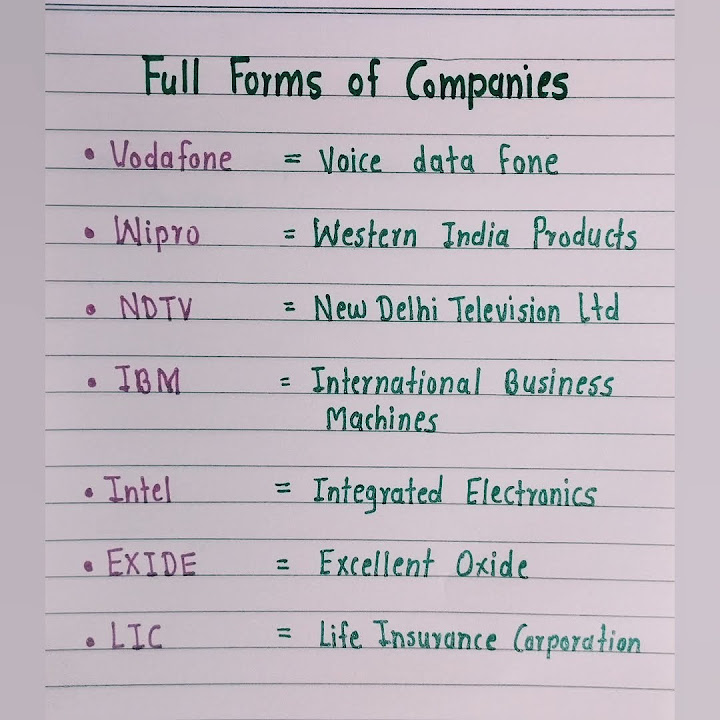 Full Forms of Companies
• Vodafone = Voice data fone
• Wipro = Western India Products
• NDTV = New Delhi Television Ltd
• IBM = International Business
Machines
• Intel = Integrated Electronics
• EXIDE = Excellent Oxide
• LIC = Life Insurance Corporation